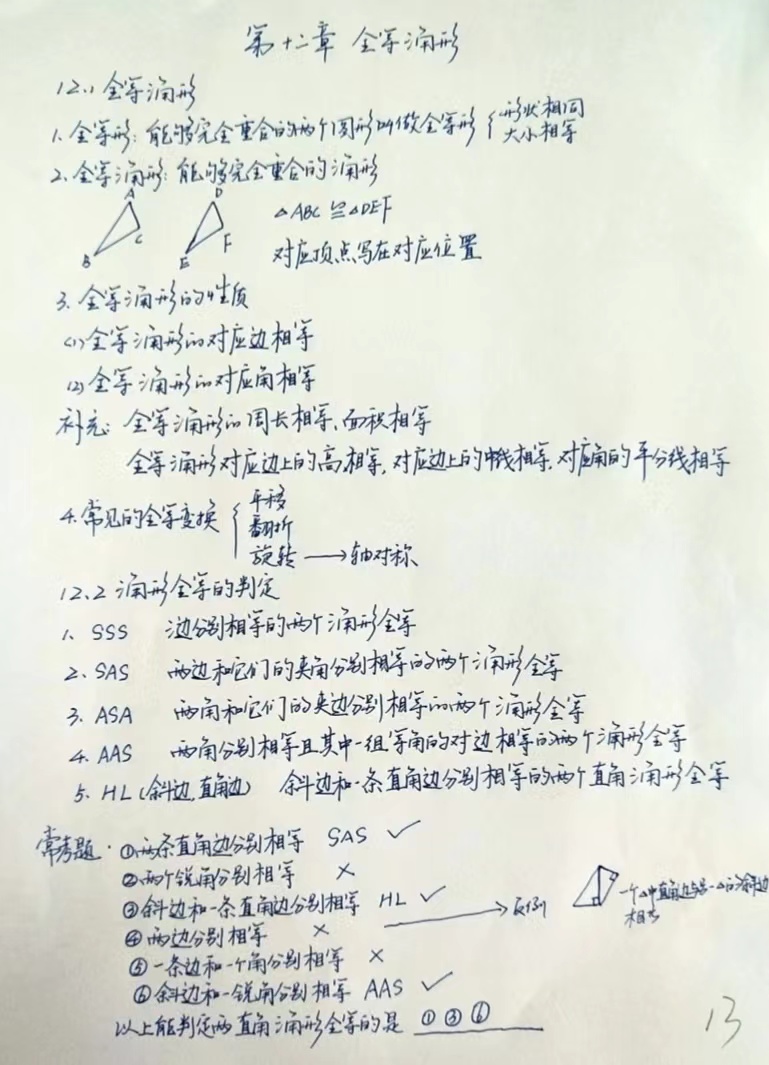 第十二章 全等三角形
12.1 全等三角形
1. 全等形: 能够完全重合的两个图形叫做全等形 { 形状相同
大小相等
2. 全等三角形: 能够完全重合的三角形
A D
△ABC ≌ △DEF
C F
B E 对应顶点写在对应位置
3. 全等三角形的性质
(1) 全等三角形的对应边相等
(2) 全等三角形的对应角相等
补充: 全等三角形的周长相等, 面积相等
全等三角形对应边上的高相等, 对应边上的中线相等, 对应角的平分线相等
4. 常见的全等变换 { 平移
翻折
旋转 → 轴对称
12.2 三角形全等的判定
1. SSS 三边分别相等的两个三角形全等
2. SAS 两边和它们的夹角分别相等的两个三角形全等
3. ASA 两角和它们的夹边分别相等的两个三角形全等
4. AAS 两角分别相等且其中一组等角的对边相等的两个三角形全等
5. HL (斜边, 直角边) 斜边和一条直角边分别相等的两个直角三角形全等
常考题. ①两条直角边分别相等 SAS ✓
②两个锐角分别相等 ×
③斜边和一条直角边分别相等 HL ✓
④两边分别相等 × → 反例 一个△中直角边与另一△的斜边
相等
⑤一条边和一个角分别相等 ×
⑥斜边和一锐角分别相等 AAS ✓
以上能判定两直角三角形全等的是 ①③⑥
13